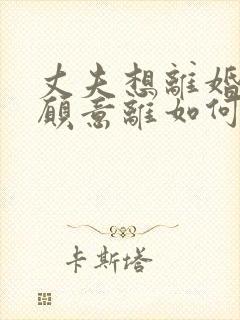 丈夫想離婚
願意離如何
卡斯塔